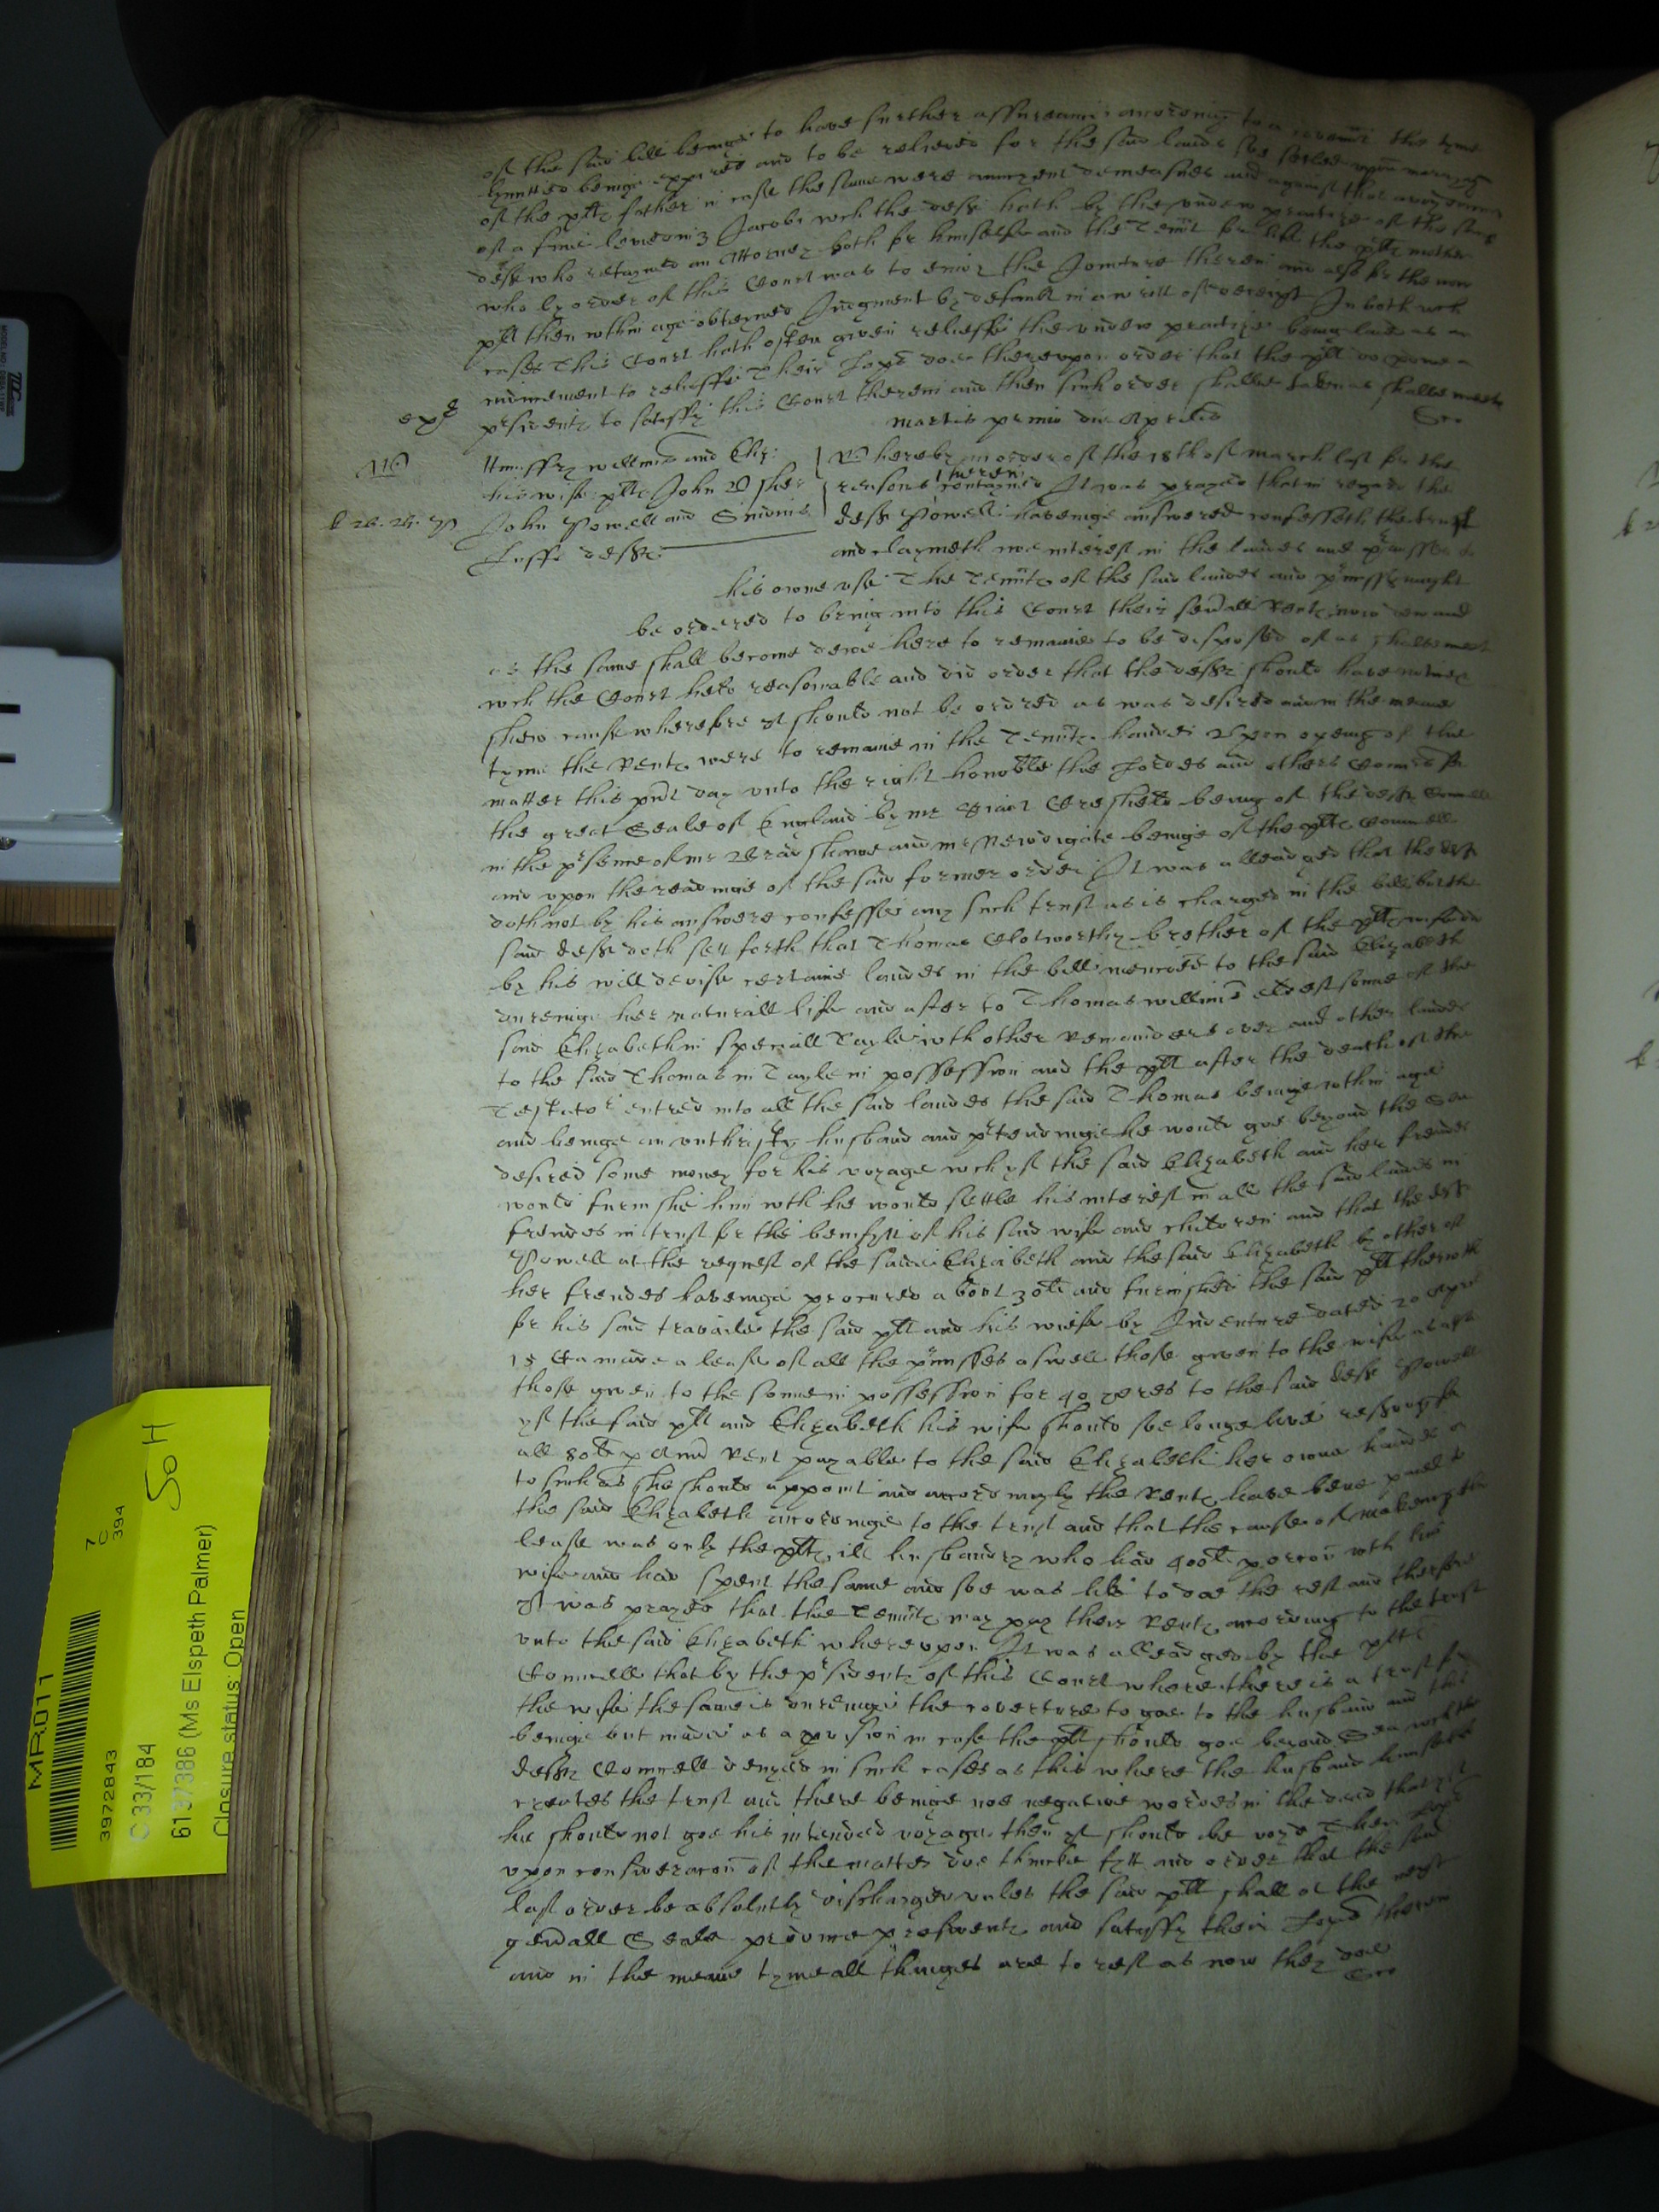 of the said bill being to have further assurance according to a covent the tyme
lymitted being expired and to be relieved for the said landes soe setled upon marriage
of the plts father in case the same were auncyent demeasnes and against that
of a fine levied in 3 Jacobi wch the deft hath by the undew practize of the
deft who retayned an Attorney both for himselfe and the Tennt for life the plts mother
who by order of this Court was to enioy the Joynture therein and also for the now
plt then wthin age obteyned Judgment by default in a writt of In both wch
cases This Court hath often given relieffe the undew practize being laid as an
inducement to relieffe Their Lopps doe thereupon order that the plt doe
psidents to satisfy this Court therein and then such order shalbe taken as shalbe meete
exr
Martis primo die Aprilis
Humffry Willmes and Eliz:
his wife plts John
John Powell and
Cuffe defts
Whereby an order of the 18th of March last for the
reasons therein contayned It was prayed that in regard the
deft Powell haveinge answered confesseth the trust
and claymeth noe interest in the landes and pmisses to
his owne use The Tennts of the said landes and pmisses might
be ordered to bring into this Court their severall Rents now dew and
as the same shall become dewe here to remaine to be disposed of as shalbe meet
wch the Court held reasonable and did order that the defts should have notice
shew cause wherefore it should not be ordred as was desired and in the meane
tyme the Rents were to remaine in the Tennts handes Upon opening of the
matter this pnt day unto the right honoble the Lordes and others Comrs for
the great Seale of England by mr being of the defts Counsell
in the psence of mr Bradshawe and mr Newdigate beinge of the plts Counsell
and upon the readinge of the said former order It was alleadged that the deft
doth not by his answere confesse any such trust as is charged in the bill but the
said deft doth sett forth that Thomas Clotworthy brother of the plts wife did
by his will devise certaine landes in the bill menconed to the said Elizabeth
dureinge her naturall life and after to Thomas Willmes eldest sonne of the
said Elizabeth in speciall Tayle wth other Remainders over and other landes
to the said Thomas in Tayle in possession and the plt after the death of the
Testator entred into all the said landes the said Thomas beinge wthin age
and beinge an unthrifty husband and ptendinge he would goe beyond the Sea
desired some money for his voyage wch yf the said Elizabeth and her frendes
would furnishe him wth he would settle his interest in all the said landes in
frendes in trust for the benefytt of his said wife and children and that the deft
Powell at the request of the said Elizabeth and the said Elizabeth by other of
her frendes haveinge procured about 30li and furnished the said plt therewth
for his said travaile the said plt and his wiefe by Indenture dated 20 Apr
15 Ca made a lease of all the pmisses aswell those given to the wife as also
those given to the sonne in possession for 40 yeres to the said deft Powell
yf the said plt and Elizabeth his wife should soe longe live reserving for
all 80li p Annu Rent payable to the said Elizabeth her owne handes or
to such as she should appoint and accordingly the Rents have bene paied to
the said Elizabeth accordinge to the trust and that the cause of makeing the
lease was only the plts ill husbandry who had 400li porcon wth his
wife and had spent the same and soe was like to doe the rest and therefore
It was prayed that the Tennts may pay their Rents according to the trust
unto the said Elizabeth whereupon It was alleadged by the plts
Counsell that by the psidents of this Court where there is a trust for
the wife the same is dureinge the coverture to goe to the husband and this
beinge but made as a pvision in case the plt should goe beyond Sea wch the
defts Counsell denyed in such cases as this where the husband himselfe
creates the trust and there beinge noe negative wordes in the deed that yf
he should not goe his intended voyage then yt should be voyd Their Lopps
upon consideracon of the matter doe thincke fytt and order that the said
last order be absolutly discharged unles the said plt shall at the next
gennall Seale produce presidents and satisfy their Lopps therein
and in the meane tyme all thinges are to rest as now they doe
MR011
3972843
7C
394
C 33/184
SoH
6137386 (Ms Elspeth Palmer)
Closure status: Open